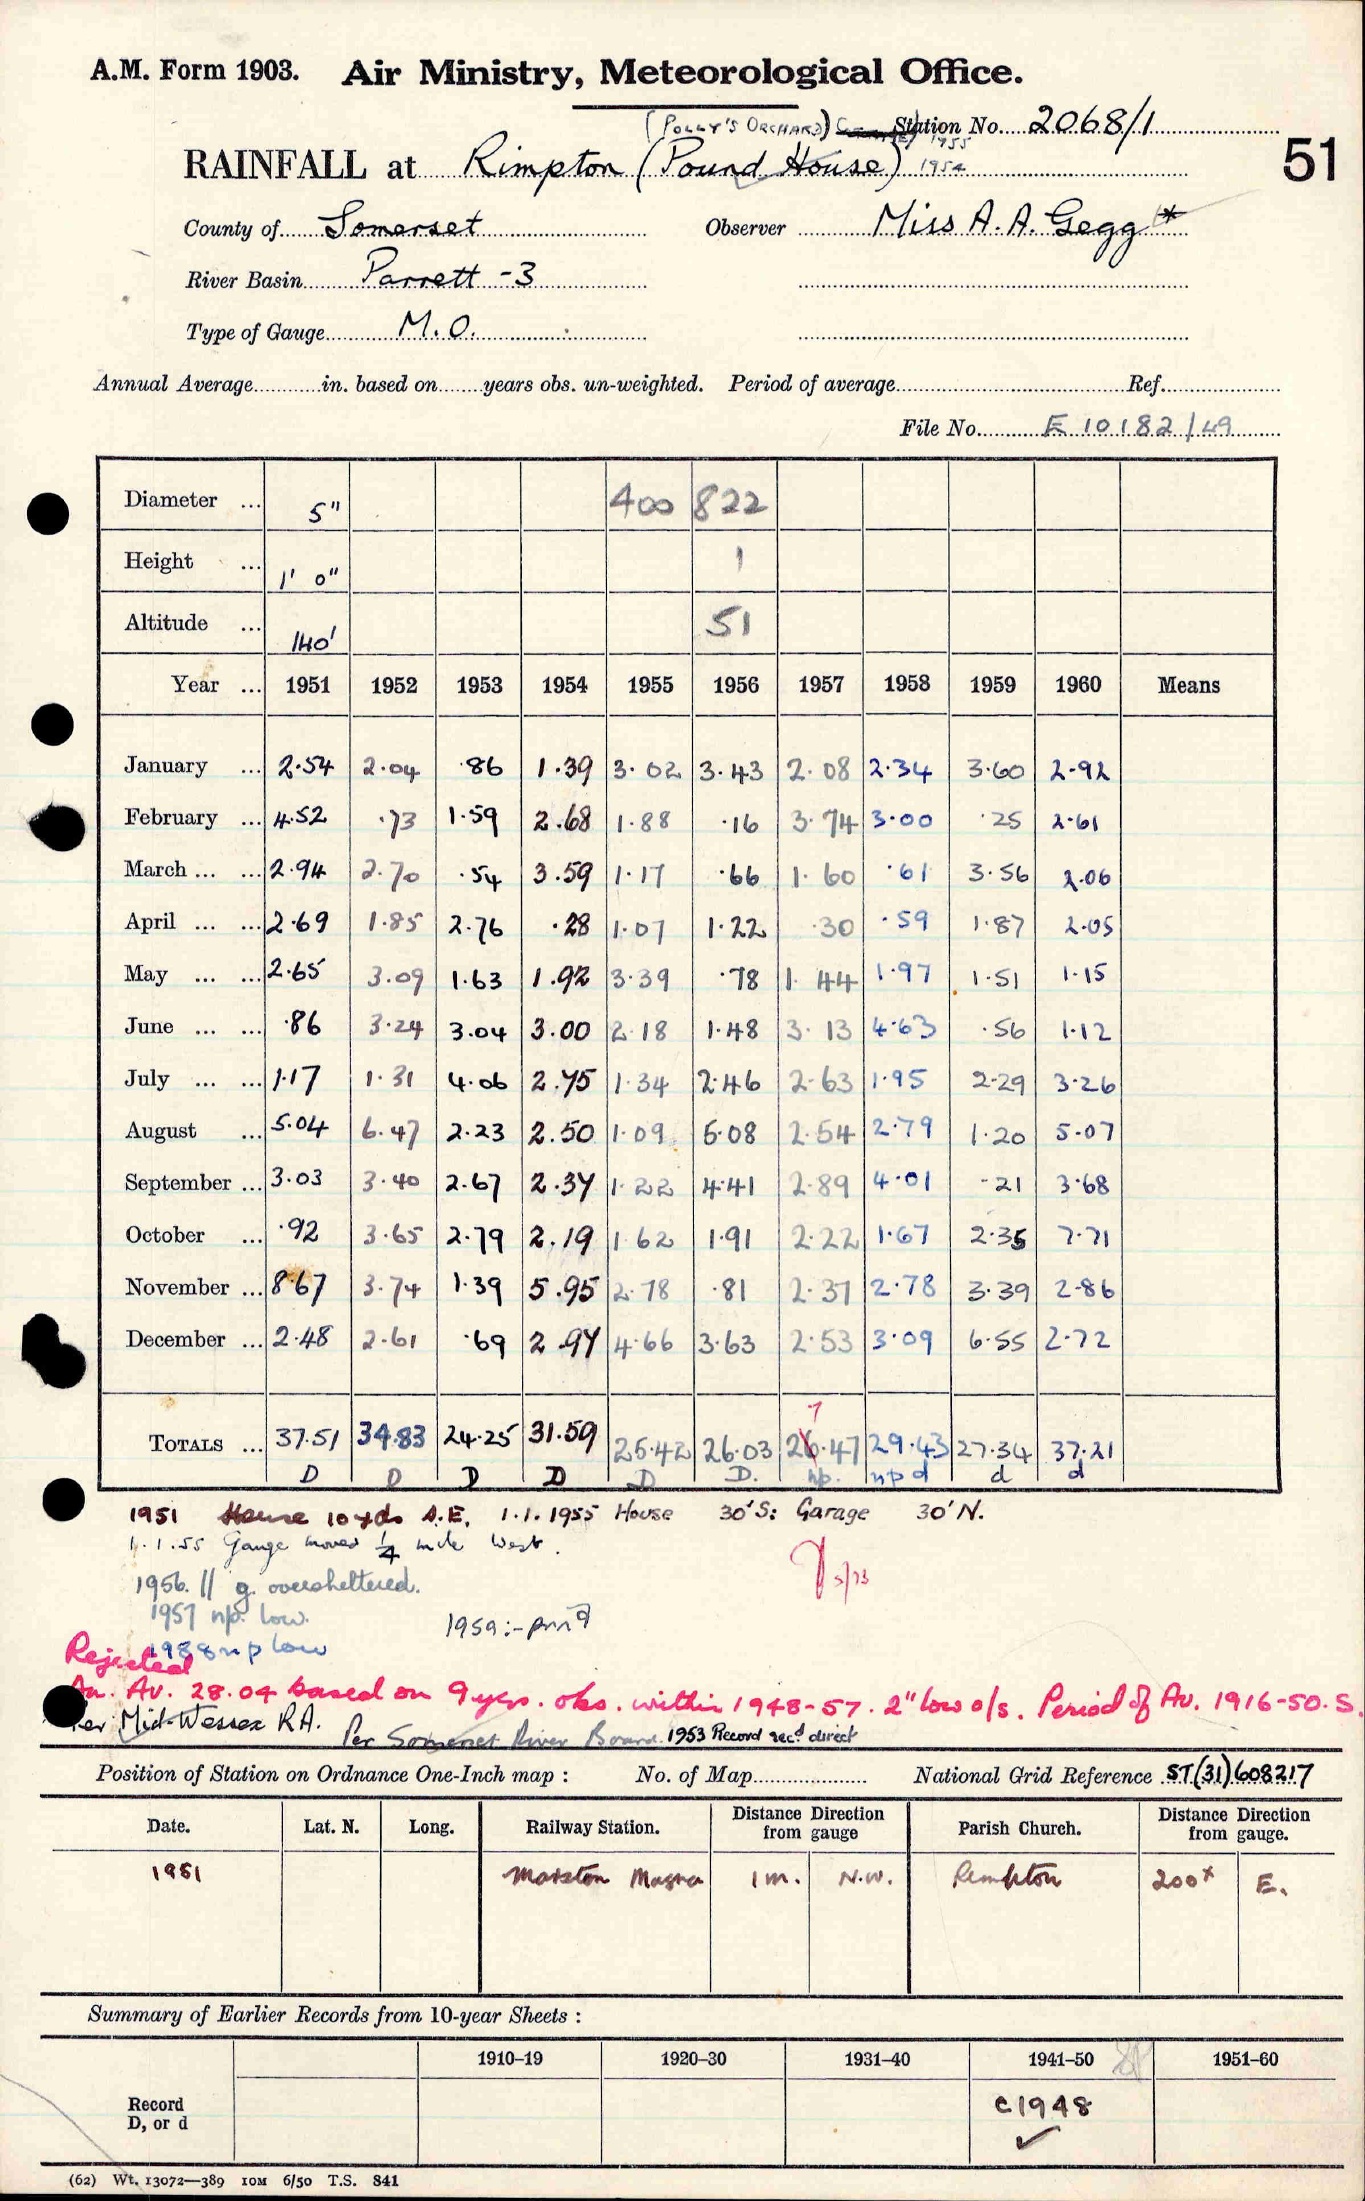 A.M. Form 1903. Air Ministry, Meteorological Office.
(POLLY'S ORCHARD) Station No. 2068/1
1955
51
RAINFALL at Rimpton (Pound House) 1954
County of Somerset Observer Miss A. A. Gegg *
River Basin Parrett -3
Type of Gauge M.O.
Annual Average in. based on years obs. un-weighted. Period of average Ref.
File No. E 10182/49
Diameter ... 5" 400 822
Height ... 1' 0" 1
Altitude ... 140' 51
Year ... 1951 1952 1953 1954 1955 1956 1957 1958 1959 1960 Means
January ... 2.54 2.04 .86 1.39 3.02 3.43 2.08 2.34 3.60 2.92
February ... 4.52 .73 1.59 2.68 1.88 .16 3.74 3.00 .25 2.61
March ... ... 2.94 2.70 .54 3.59 1.17 .66 1.60 .61 3.56 2.06
April ... ... 2.69 1.85 2.76 .28 1.07 1.22 .30 .59 1.87 2.05
May ... ... 2.65 3.09 1.63 1.92 3.39 .78 1.44 1.97 1.51 1.15
June ... ... .86 3.24 3.04 3.00 2.18 1.48 3.13 4.63 .56 1.12
July ... ... 1.17 1.31 4.06 2.75 1.34 2.46 2.63 1.95 2.29 3.26
August ... 5.04 6.47 2.23 2.50 1.09 5.08 2.54 2.79 1.20 5.07
September ... 3.03 3.40 2.67 2.37 1.22 4.41 2.89 4.01 .21 3.68
October ... .92 3.65 2.79 2.19 1.62 1.91 2.22 1.67 2.35 7.71
November ... 8.67 3.74 1.39 5.95 2.78 .81 2.37 2.78 3.39 2.86
December ... 2.48 2.61 .69 2.97 4.66 3.63 2.53 3.09 6.55 2.72
7
TOTALS ... 37.51 34.83 24.25 31.59 25.42 26.03 26.47 29.43 27.34 37.21
D D D D D D. np. np d d d
1951 House 10 yds S.E. 1.1.1955 House 30'S: Garage 30'N.
1.1.55 Gauge moved 1/4 mile West.
1956. // g. oversheltered.
5/73
1957 np. low.
1959:- prnd
1958 np low
Rejected
An. Av. 28.04 based on 9 yrs. obs. within 1948-57. 2" low o/s. Period of Av. 1916-50. S.
Per Mid-Wessex R.A. Per Somerset River Board. 1953 Record recd direct
Position of Station on Ordnance One-Inch map : No. of Map National Grid Reference ST(31)608217
Date. Lat. N. Long. Railway Station. Distance Direction from gauge Parish Church. Distance Direction from gauge.
1951 Marston Magna 1 m. N.W. Rimpton 200x E.
Summary of Earlier Records from 10-year Sheets :
1910–19 1920–30 1931–40 1941–50 1951–60
Record D, or d c1948 ✓
(62) Wt. 13072—389 10M 6/50 T.S. 841